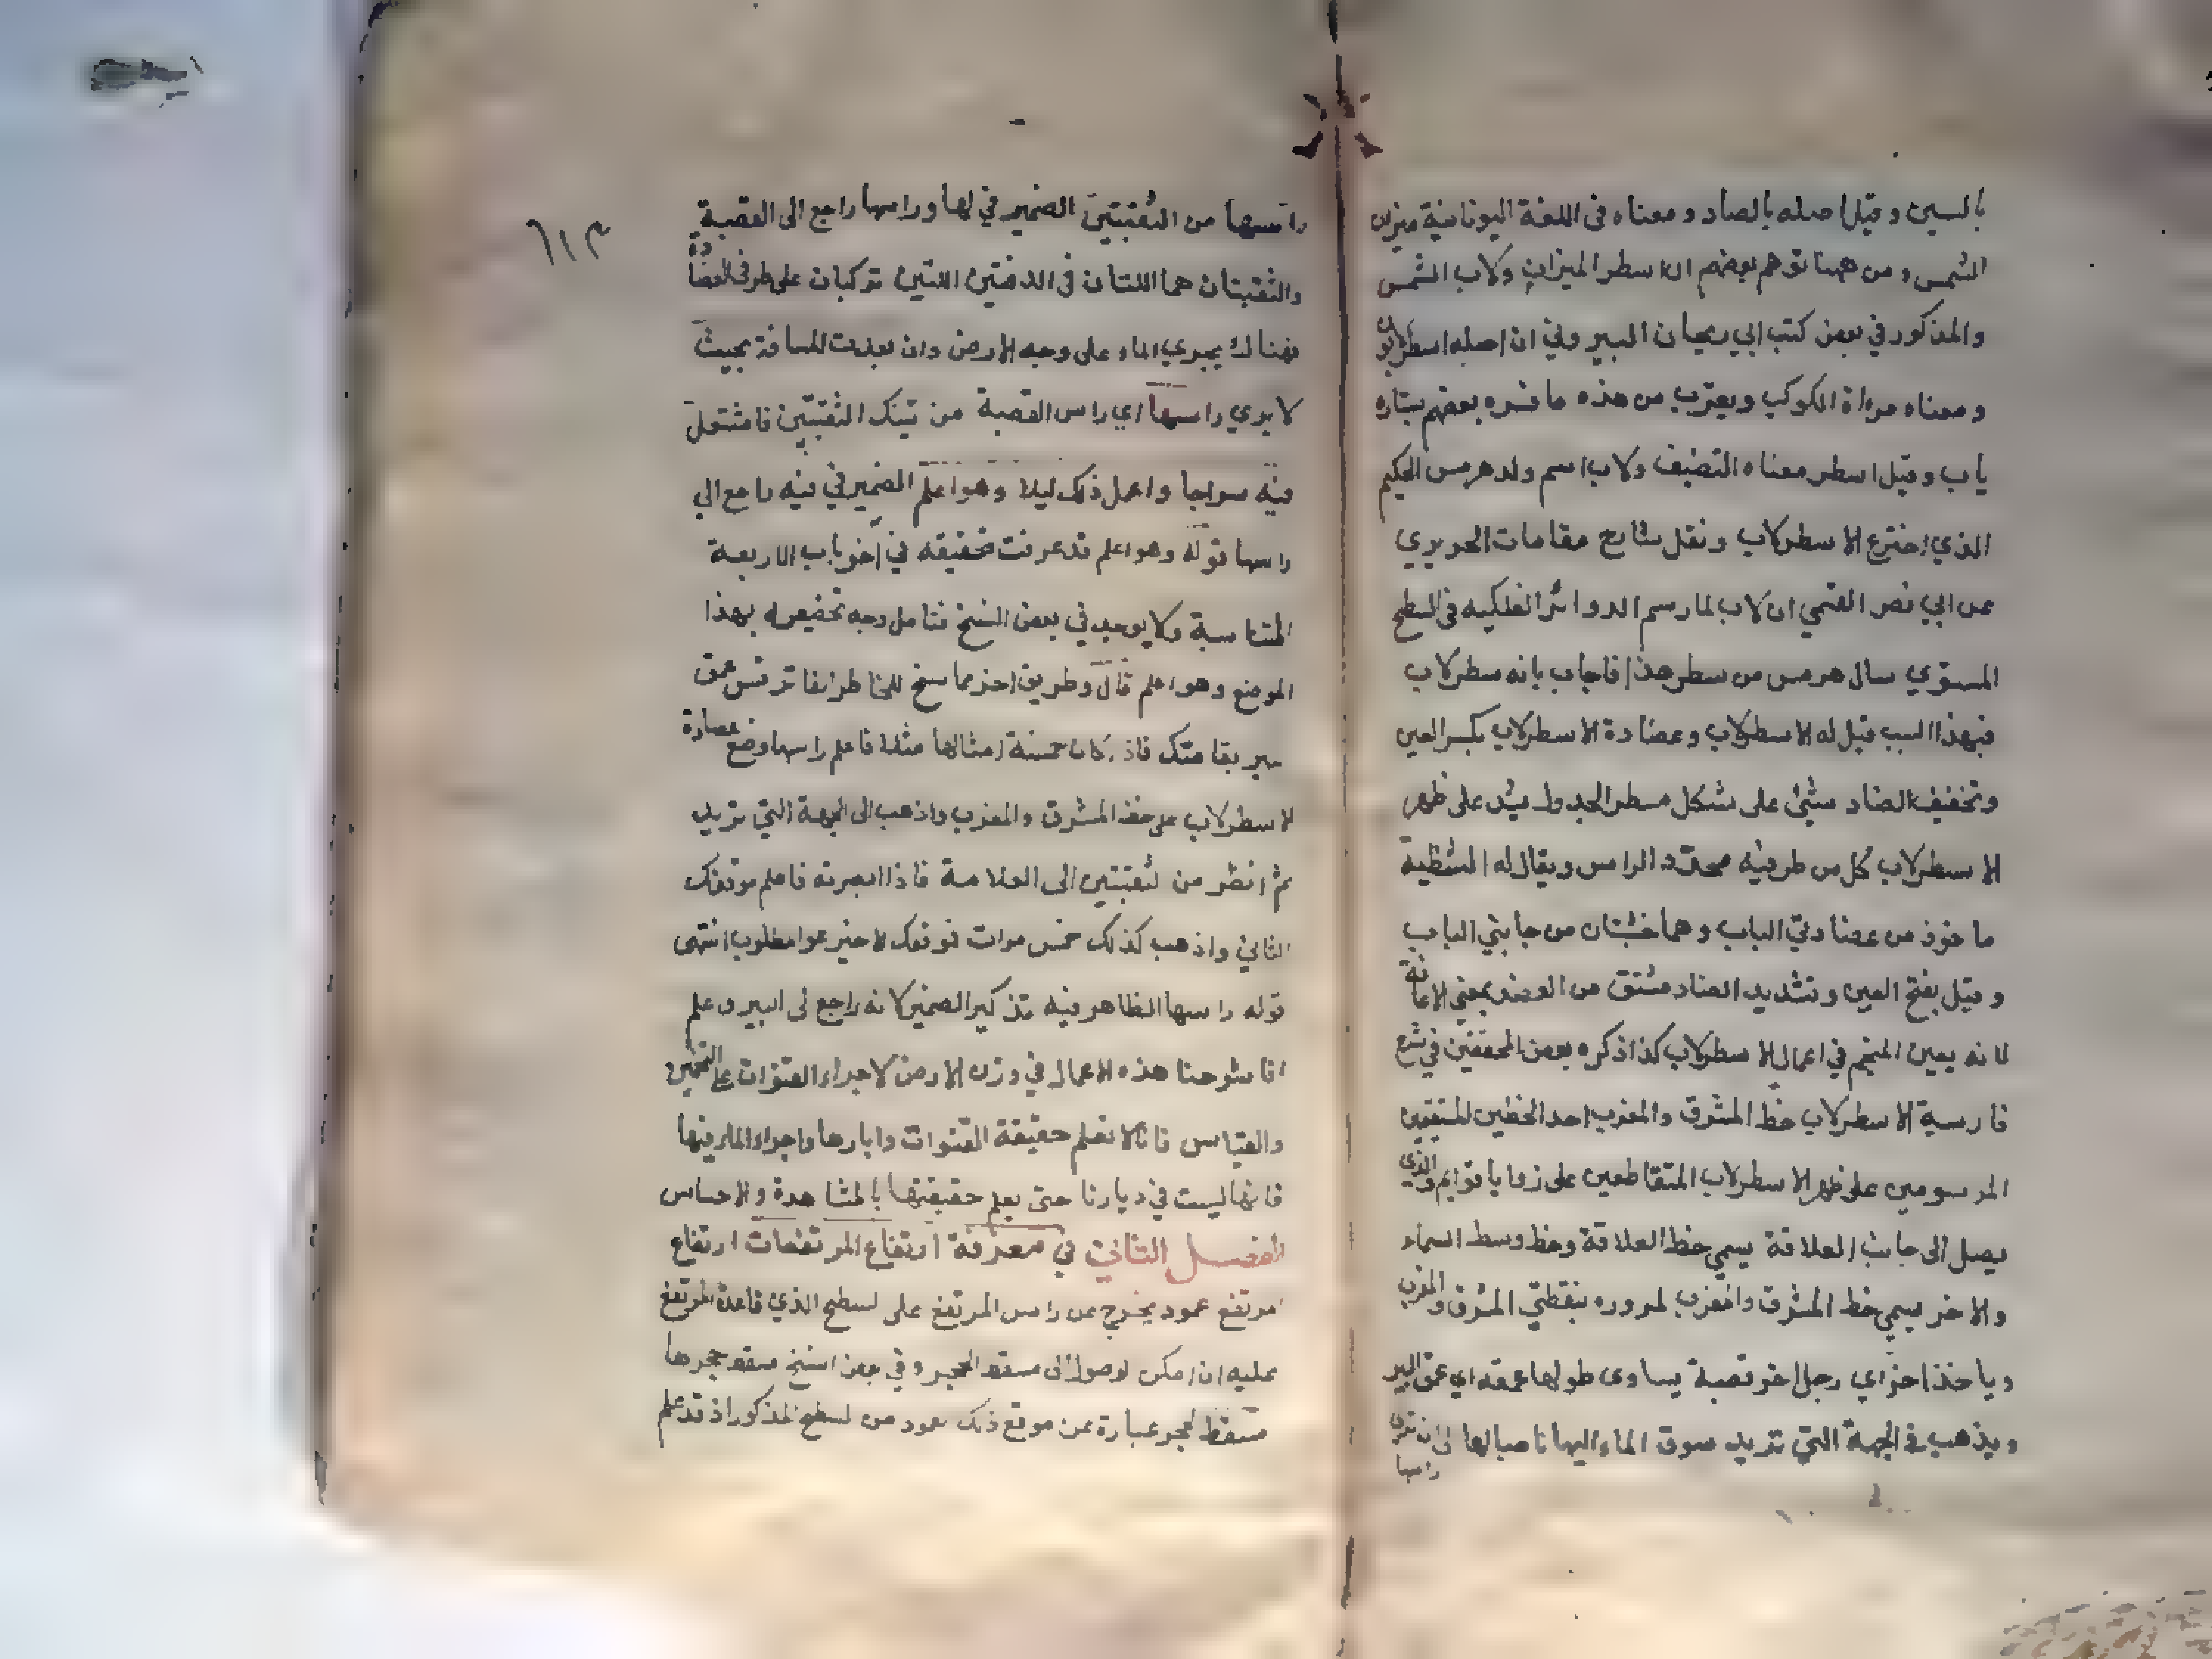 بالسين وقيل اصله بالصاد ومعناه في اللغة اليونانية ميزان
الشمس ومن ههنا توهم بعضهم ان الاسطر الميزان ولاب الشمس
والمذكور في بعض كتب ابي ريحان البيروني ان اصله اسطرلابون
ومعناه مرآة الكوكب ويقرب من هذه ما فسره بعضهم بستاره
ياب وقيل اسطر معناه التصنيف ولاب اسم ولد هرمس الحكيم
الذي اخترع الاسطرلاب ونقل شارح مقامات الحريري
عن ابي نصر القمي ان لاب لما رسم الدوائر الفلكيه في السطح
المستوي سال هرمس من سطر هذا فاجاب بانه سطر لاب
فبهذا السبب قيل له الاسطرلاب وعضادة الاسطرلاب بكسر العين
وتخفيف الضاد شيئ على شكل مسطر الجدول يشد على ظهر
الاسطرلاب كل من طرفيه محدد الراس ويقال له الشظية
ماخوذ من عضادتي الباب وهما خشبتان من جانبي الباب
وقيل بفتح العين وتشديد الضاد مشتق من العضد بمعني الاعانة
لانه يعين المنجم في اعمال الاسطرلاب كذا ذكره بعض المحققين في شرح
فارسية الاسطرلاب خط المشرق والمغرب احد الخطين المستقيمين
المرسومين على ظهر الاسطرلاب المتقاطعين على زوايا قوايم والذي
يصل الى جانب العلاقة يسمي خط العلاقة وخط وسط السماء
والاخر يسمي خط المشرق والمغرب لمروره بنقطتي المشرق والمغرب
وياخذ اخر اي رجل اخر قصبة يساوى طولها عمقه اي عمق البير
ويذهب في الجهة التي تريد سوق الماء اليها ناصبا لها الى ان ترى
راسها
٦١٣
راسها من الثقبتين الضمير في لها وراسها راجع الى القصبة
والثقبتان هما اللتان في الدفتين اللتين تركبان على طرفي العضادة
فهنالك يجري الماء على وجه الارض وان بعدت المسافة بحيث
لا يري راسها اي راس القصبة من تينك الثقبتين فاشتعل
فيه سراجا واعمل ذلك ليلا وهو اعلم الضمير في فيه راجع الي
راسها قوله وهو اعلم قد عرفت تحقيقه في اخر باب الاربعة
المتناسبة ولا يوجد في بعض النسخ فتامل وجه تخصيصه بهذا
الموضع وهو اعلم قال وطريق اخر مما سنح للخاطر الفاتر قس عمق
البير بقامتك فاذا كان خمسة امثالها مثلا فاعلم راسها وضع عضادة
الاسطرلاب على خط المشرق والمغرب واذهب الى الجهة التي تريد
ثم انظر من الثقبتين الى العلامة فاذا ابصرته فاعلم موقفك
الثاني واذهب كذلك خمس مرات فموقفك الاخير هو المطلوب انتهى
قوله راسها الظاهر فيه تذكير الضمير لانه راجع الى البير واعلم
انا شرحنا هذه الاعمال في وزن الارض لاجراء القنوات على التخمين
والقياس فانا لا نعلم حقيقة القنوات وابارها واجراء الماء فيها
فانها ليست في ديارنا حتى يعلم حقيقتها بالمشاهدة والاحساس
الفصل الثاني في معرفة ارتفاع المرتفعات ارتفاع
المرتفع عمود يخرج من راس المرتفع على السطح الذي قاعدة المرتفع
عليه ان امكن الوصول الى مسقط الحجر وفي بعض النسخ مسقط حجرها
مسقط الحجر عبارة عن موقع ذلك العمود من السطح المذكور اذ قد علم